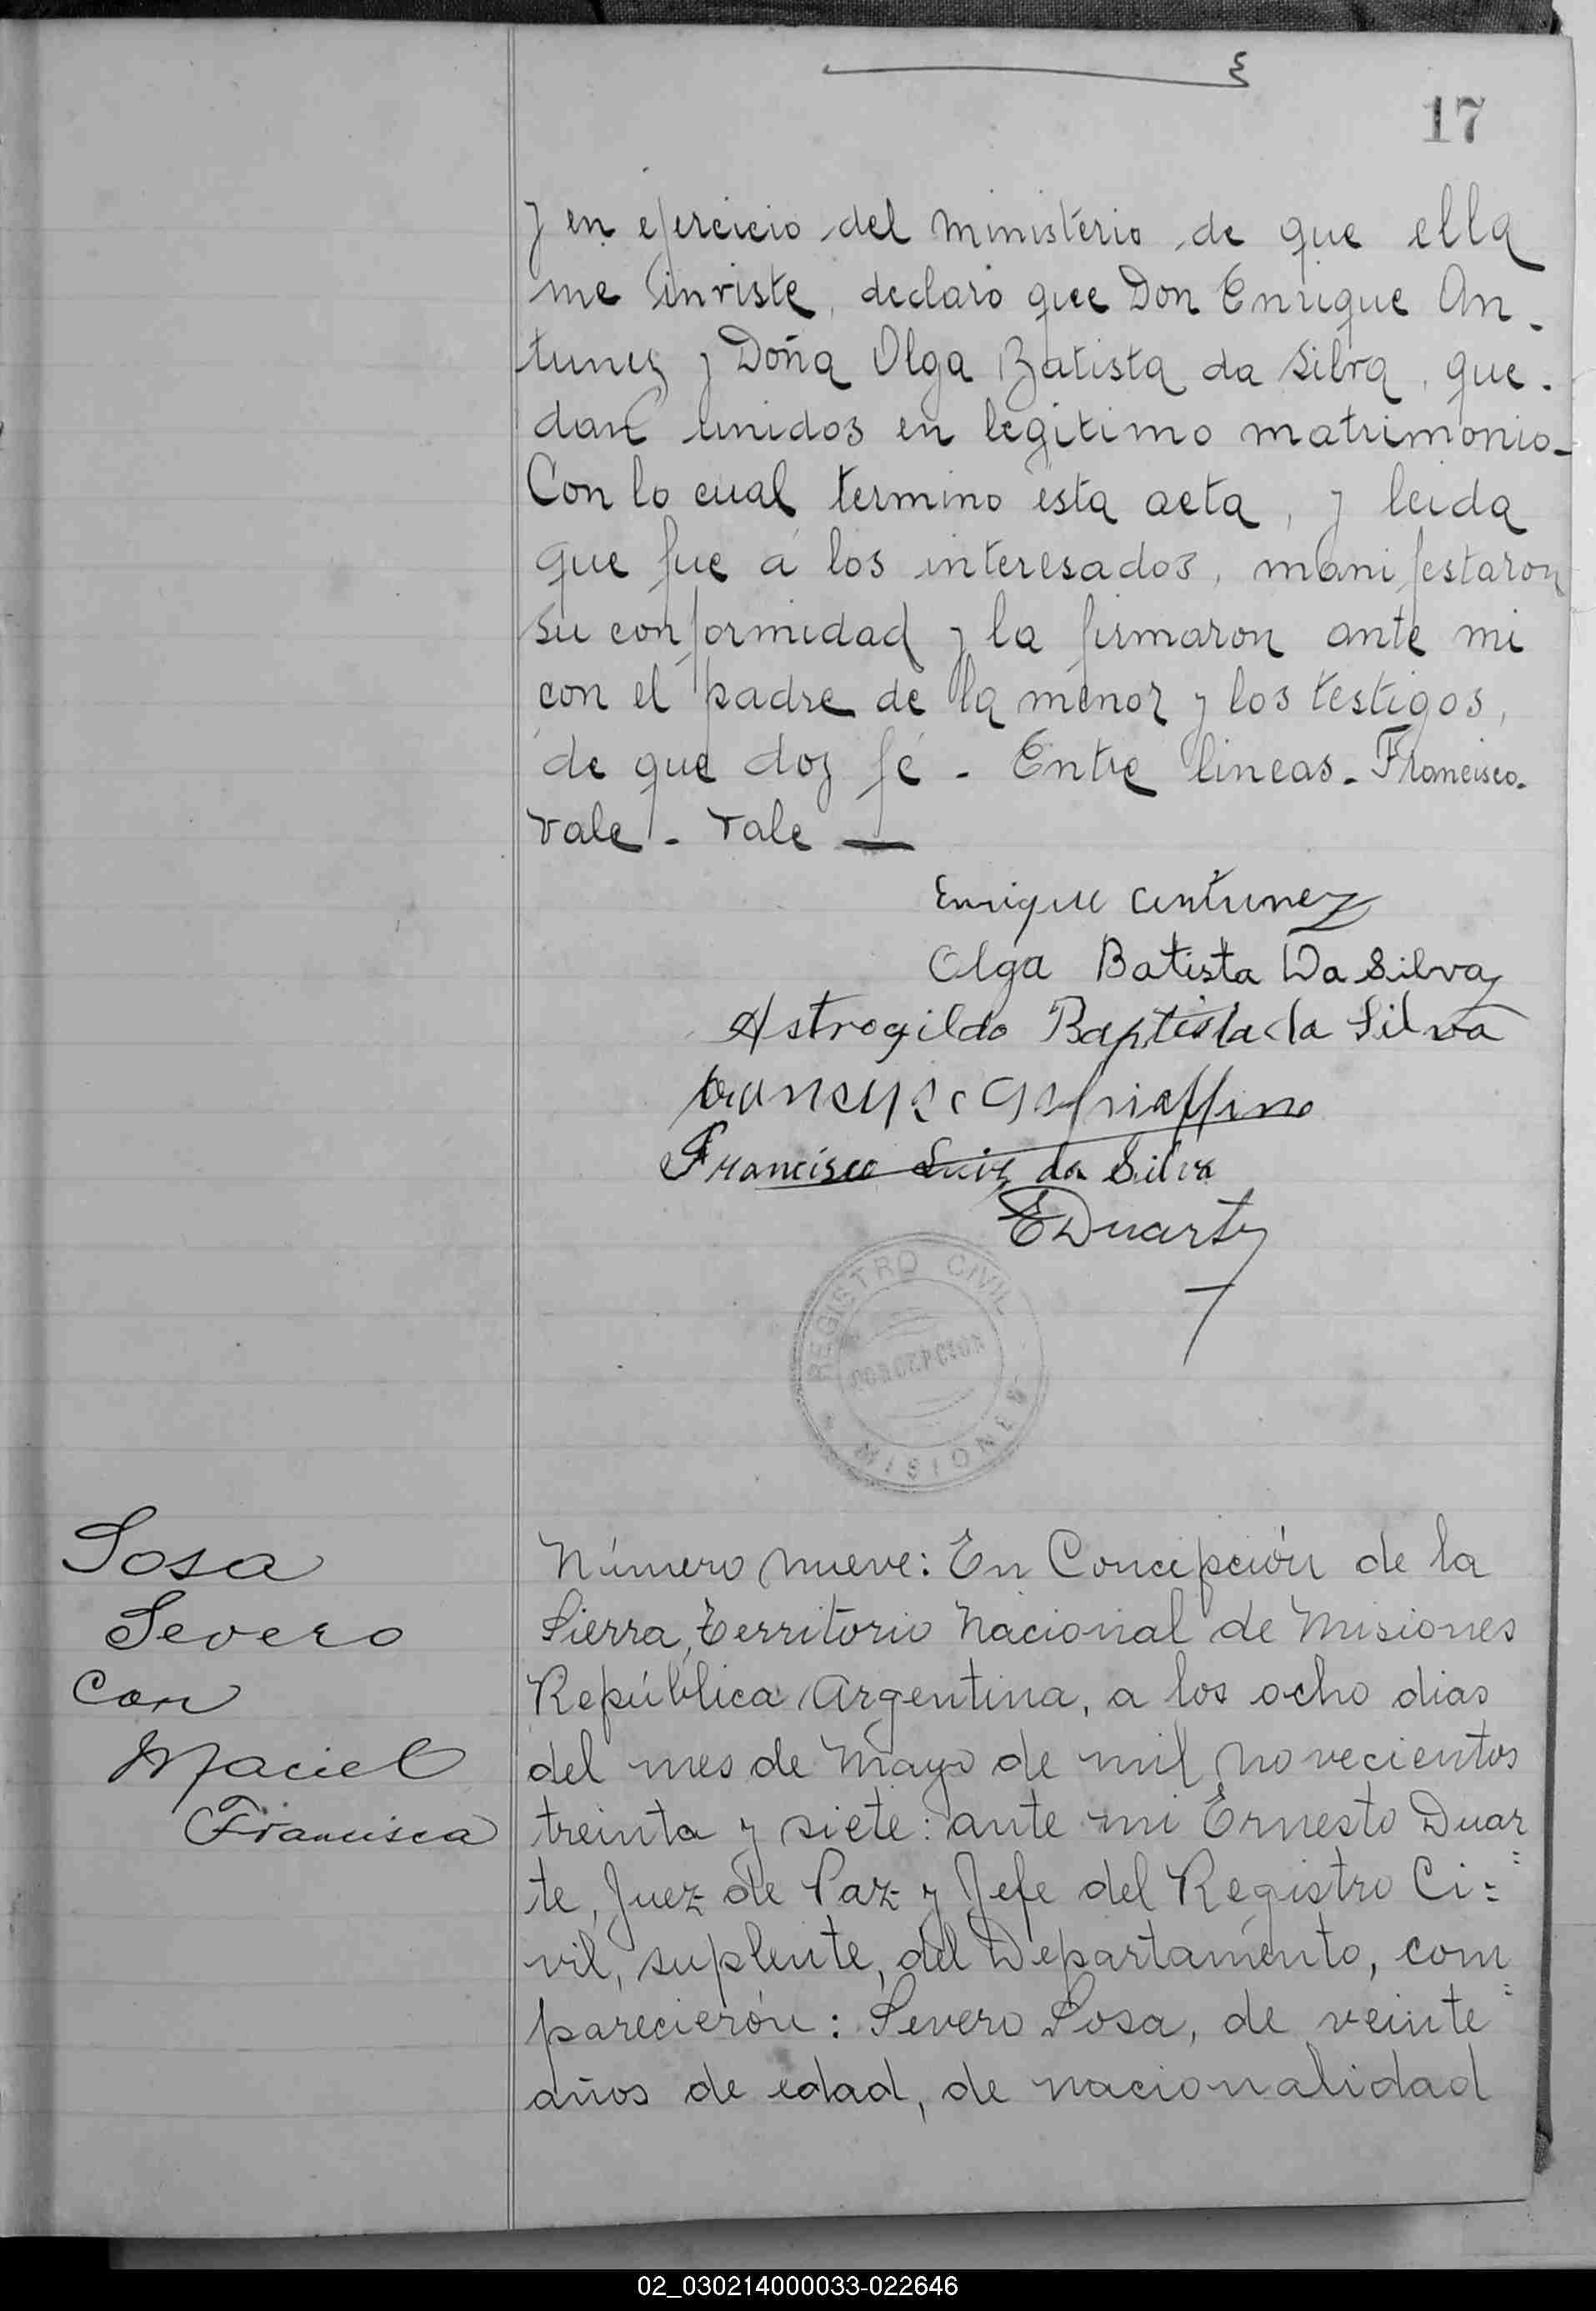 17
y en ejercicio del ministerio de que ella
me inviste, declaro que Don Enrique An-
tunez y Doña Olga Batista da Silva, que-
dan unidos en legitimo matrimonio-
Con lo cual termino esta acta, y leida
que fue á los interesados, manifestaron
su conformidad y la firmaron ante mi
con el padre de la menor y los testigos,
de que doy fé - Entre lineas - Francisco-
vale - vale —
Enrique Antunez
Olga Batista Da Silva
Astrogildo Baptista da Silva
Francisco Luiz da Silva
EDuarte
REGISTRO CIVIL
CONCEPCION
MISIONES
Sosa
Severo
con
Maciel
Francisca
Número nueve: En Concepción de la
Sierra, Territorio Nacional de Misiones
República Argentina, a los ocho dias
del mes de Mayo de mil novecientos
treinta y siete: ante mi Ernesto Duar
te, Juez de Paz y Jefe del Registro Ci=
vil, suplente, del Departamento, com=
parecierón: Severo Sosa, de veinte
años de edad, de nacionalidad
02_030214000033-022646